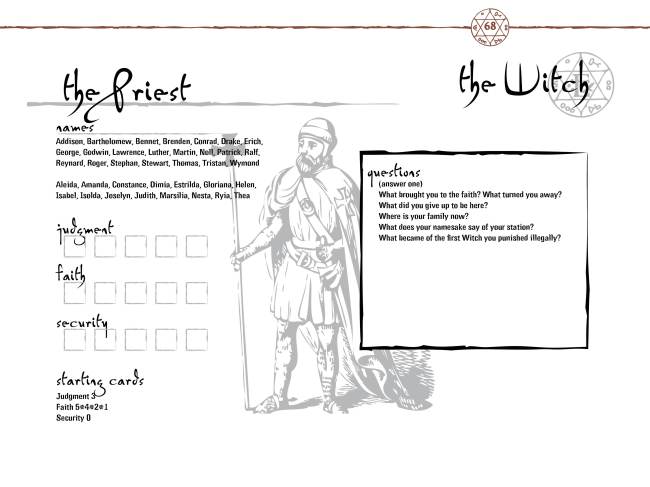 68
the Priest
the Witch
names
Addison, Bartholomew, Bennet, Brenden, Conrad, Drake, Erich,
George, Godwin, Lawrence, Luther, Martin, Nell, Patrick, Ralf,
Reynard, Roger, Stephan, Stewart, Thomas, Tristan, Wymond
Aleida, Amanda, Constance, Dimia, Estrilda, Gloriana, Helen,
Isabel, Isolda, Joselyn, Judith, Marsilia, Nesta, Ryia, Thea
judgment
faith
security
starting cards
Judgment 3
Faith 5*4*2*1
Security 0
questions
(answer one)
What brought you to the faith? What turned you away?
What did you give up to be here?
Where is your family now?
What does your namesake say of your station?
What became of the first Witch you punished illegally?